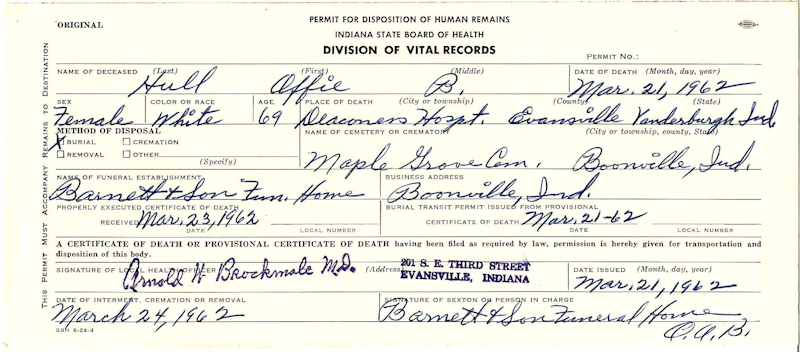 ORIGINAL
PERMIT FOR DISPOSITION OF HUMAN REMAINS
INDIANA STATE BOARD OF HEALTH
DIVISION OF VITAL RECORDS
PERMIT NO.:
THIS PERMIT MUST ACCOMPANY REMAINS TO DESTINATION
NAME OF DECEASED (Last) (First) (Middle) DATE OF DEATH (Month, day, year)
Hull Offie B. Mar. 21, 1962
SEX COLOR OR RACE AGE PLACE OF DEATH (City or township) (County) (State)
Female White 69 Deaconess Hospt. Evansville Vanderburgh Ind.
METHOD OF DISPOSAL NAME OF CEMETERY OR CREMATORY (City or township, county, State)
X BURIAL CREMATION
REMOVAL OTHER (Specify)
Maple Grove Cem. Boonville, Ind.
NAME OF FUNERAL ESTABLISHMENT BUSINESS ADDRESS
Barnett & Son Fun. Home Boonville, Ind.
PROPERLY EXECUTED CERTIFICATE OF DEATH BURIAL TRANSIT PERMIT ISSUED FROM PROVISIONAL
RECEIVED Mar. 23, 1962 CERTIFICATE OF DEATH Mar. 21-62
DATE LOCAL NUMBER DATE LOCAL NUMBER
A CERTIFICATE OF DEATH OR PROVISIONAL CERTIFICATE OF DEATH having been filed as required by law, permission is hereby given for transportation and
disposition of this body.
SIGNATURE OF LOCAL HEALTH OFFICER (Address) DATE ISSUED (Month, day, year)
Arnold W Brockmole M.D. 201 S. E. THIRD STREET
EVANSVILLE, INDIANA
Mar. 21, 1962
DATE OF INTERMENT, CREMATION OR REMOVAL SIGNATURE OF SEXTON OR PERSON IN CHARGE
March 24, 1962 Barnett & Son Funeral Home
SBH 6-24-4 O.A.B.